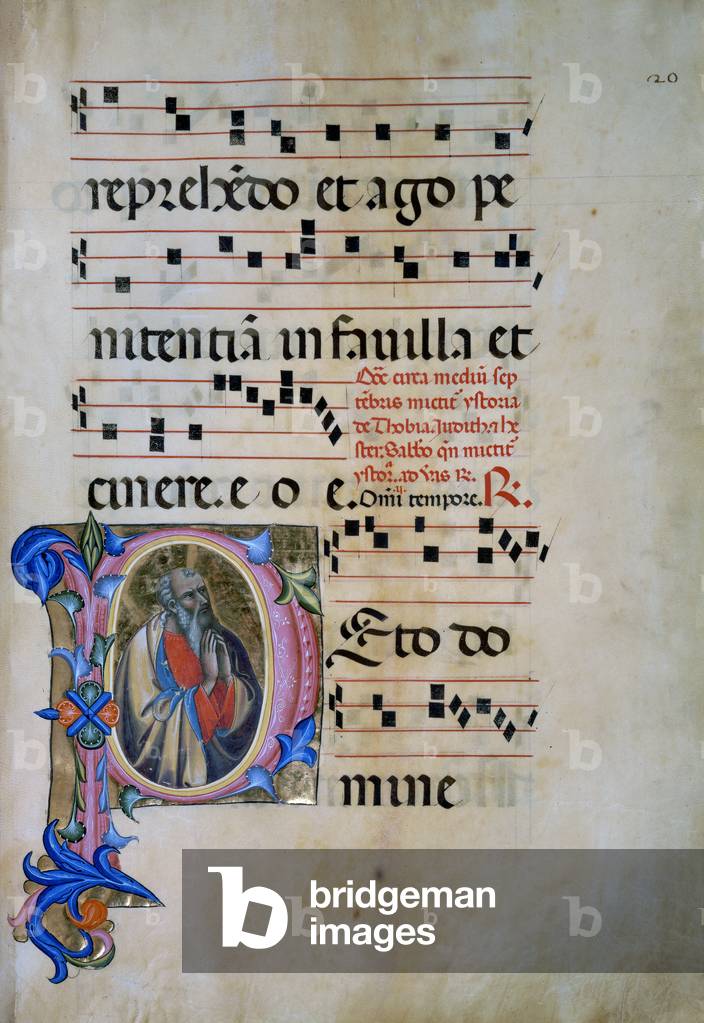 20
reprehēdo et ago pe
nitentiā in fauilla et
cinere. e o e.
Dōc circa mediū sep
tēbris mictit᷑ ystoria
de Thobia. Judith. ⁊ he
ster. Sabbo q̄n mictit᷑
ystoᵃ. ad v̄as R̃.
Om̄i tempore. R̃.
P Eto do
mine
bridgeman
images